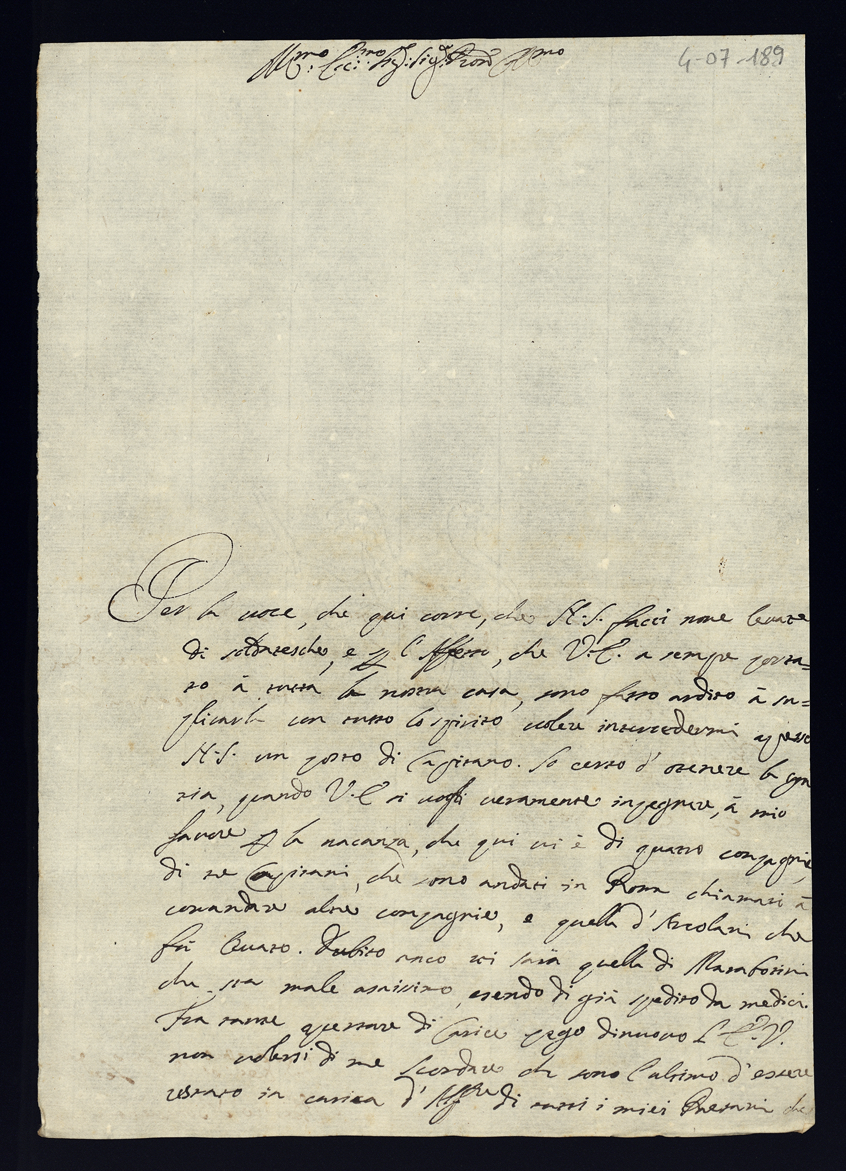 4-07-189
Ill.mo Ecc.mo Sig.r Sig.r Pron Col.mo
Per la uoce, che qui corre, che N:S. facci noue leuate
di soldatesche, e p l'Affetto, che V.E. a sempre porta=
to à tutta la nostra casa, sono fatto ardito à su=
plicarla con tutto lo spirito uolere intercedermi apresso
N:S. un posto di Capitano. So certo d'otenere la gra
tia, quando V.E. si uogli ueramente inpegnare, à mio
fauore p la uacanza, che qui ui è di quatro conpagnie,
di tre Capitani, che sono andati in Roma chiamati à
comandare altre conpagnie, e quella d'Ercolani che
fù leuato. Dubito anco ui sarà quella di
che sta male asaisimo, esendo di già spedito da medici.
Fra tante aperture di Carice prego dinuouo L'E.V.
non uolersi di me scordare che sono l'ultimo d'essere
restato in carica d'Alf.re di tutti i miei che